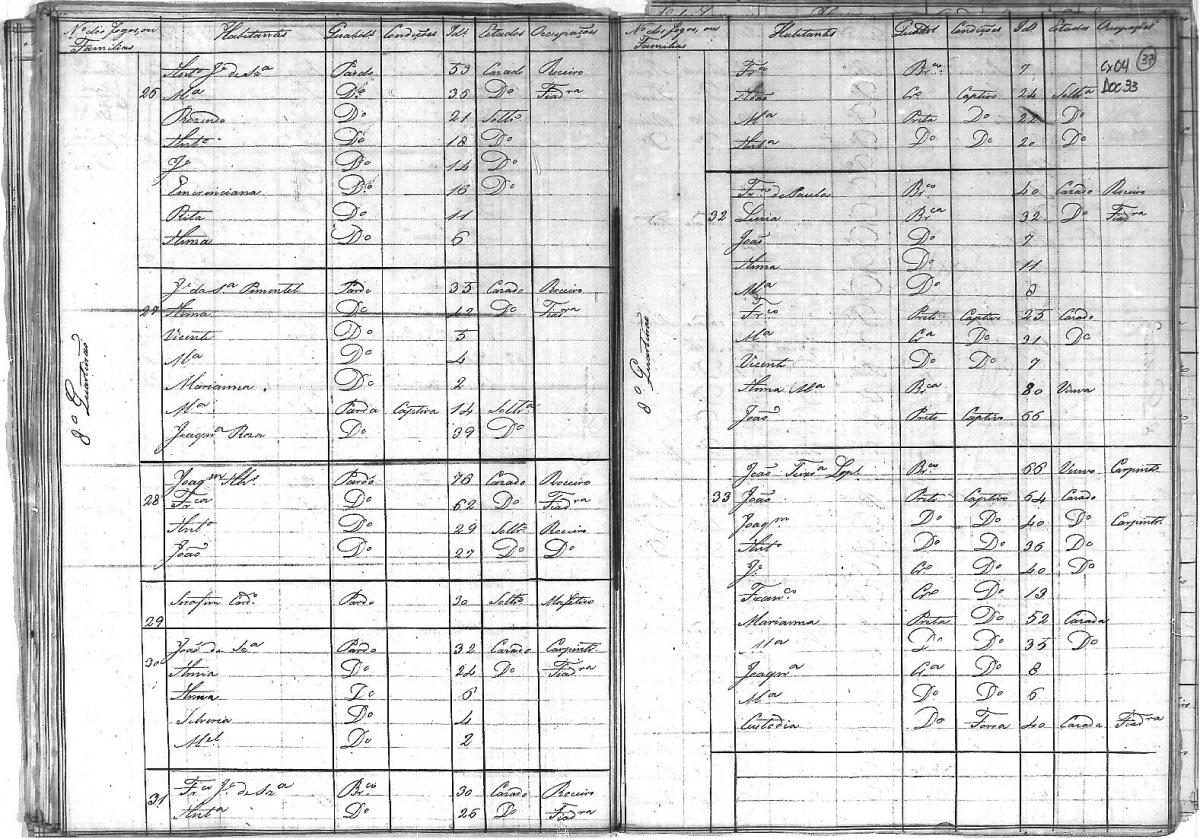 Nº dos Fogos, ou Familias Habitantes Qualids Condições Ids Estados Occupações
Antº Jº de Szª Pardo 53 Casado Roceiro
26 Mª Dº 36 Dº Fiadra
Rozendo Dº 21 Solttº
Antº Dº 18 Dº
Jº Dº 14 Dº
Emerenciana Dº 16 Dº
Rita Dº 11
Anna Dº 6
Jº da Sª Pimentel Pardo 35 Casado Roceiro
27 Anna Dº 42 Dº Fiadra
Vicente Dº 5
Mª Dº 4
Marianna Dº 2
Mª Parda Captiva 14 Solttª
Joaqmª Roza Dº 39 Dº
8º Quarteirão
Joaqm Pardo 76 Casado Roceiro
28 Frca Dº 62 Dº Fiadra
Antº Dº 29 Solttº Roceiro
João Dº 27 Dº Dº
29 Serafim Pardo 30 Solttº
30 João de Pardo 32 Casado Carpintº
Anna Dº 24 Dº Fiadra
Anna Dº 6
Silveria Dº 4
Mel Dº 2
31 Frco Jº de Szª Brco 30 Casado Roceiro
Antª Dº 26 Dº Fiadra
Nº dos Fogos, ou Familias Habitantes Condições Ids Estados Occupações
Cx04 33
DOC 33
Frco Brco 7
Adão Crº Captivo 24
Mª Preta Dº 22 Dº
Antª Dº Dº 20 Dº
Frco de Paula Brco 40 Casado Roceiro
32 Brca 32 Dº Fiadra
João Dº 7
Anna Dº 11
Mª Dº 8
Frco Preto Captivo 25 Casado
Mª Crª Dº 21 Dº
Vicente Dº Dº 7
Anna Mª Brca 80 Viuva
João Preto Captivo 66
8º Quarteirão
João Teixª Brco 66 Viuvo Carpintº
33 João Preto Captivo 54 Casado
Joaqm Dº Dº 40 Dº Carpintº
Antº Dº Dº 36 Dº
Jº Crº Dº 40 Dº
Francº Crº Dº 13
Marianna Preta Dº 52 Casada
Mª Dº Dº 35 Dº
Joaqmª Crª Dº 8
Mª Dº Dº 6
Custodia Dº Forra 40 Casada Fiadra